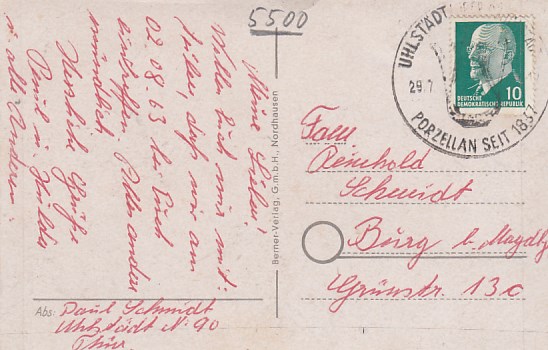 5500
Meine Lieben!
Wollte Euch nur mit-
teilen, daß wir am
02.08.63 bei Euch
eintreffen. Alles andere
mündlich
Herzliche Grüße
Paul u. Hulda
u. alle Andern.
Abs: Paul Schmidt
Uhlstädt Nr. 90
Thür.
Berner-Verlag, G.m.b.H., Nordhausen
UHLSTÄDT
29.7
PORZELLAN SEIT 1837
10
DEUTSCHE
DEMOKRATISCHE REPUBLIK
Fam
Reinhold
Schmidt
Burg b. Magdbg
Grünstr. 13c